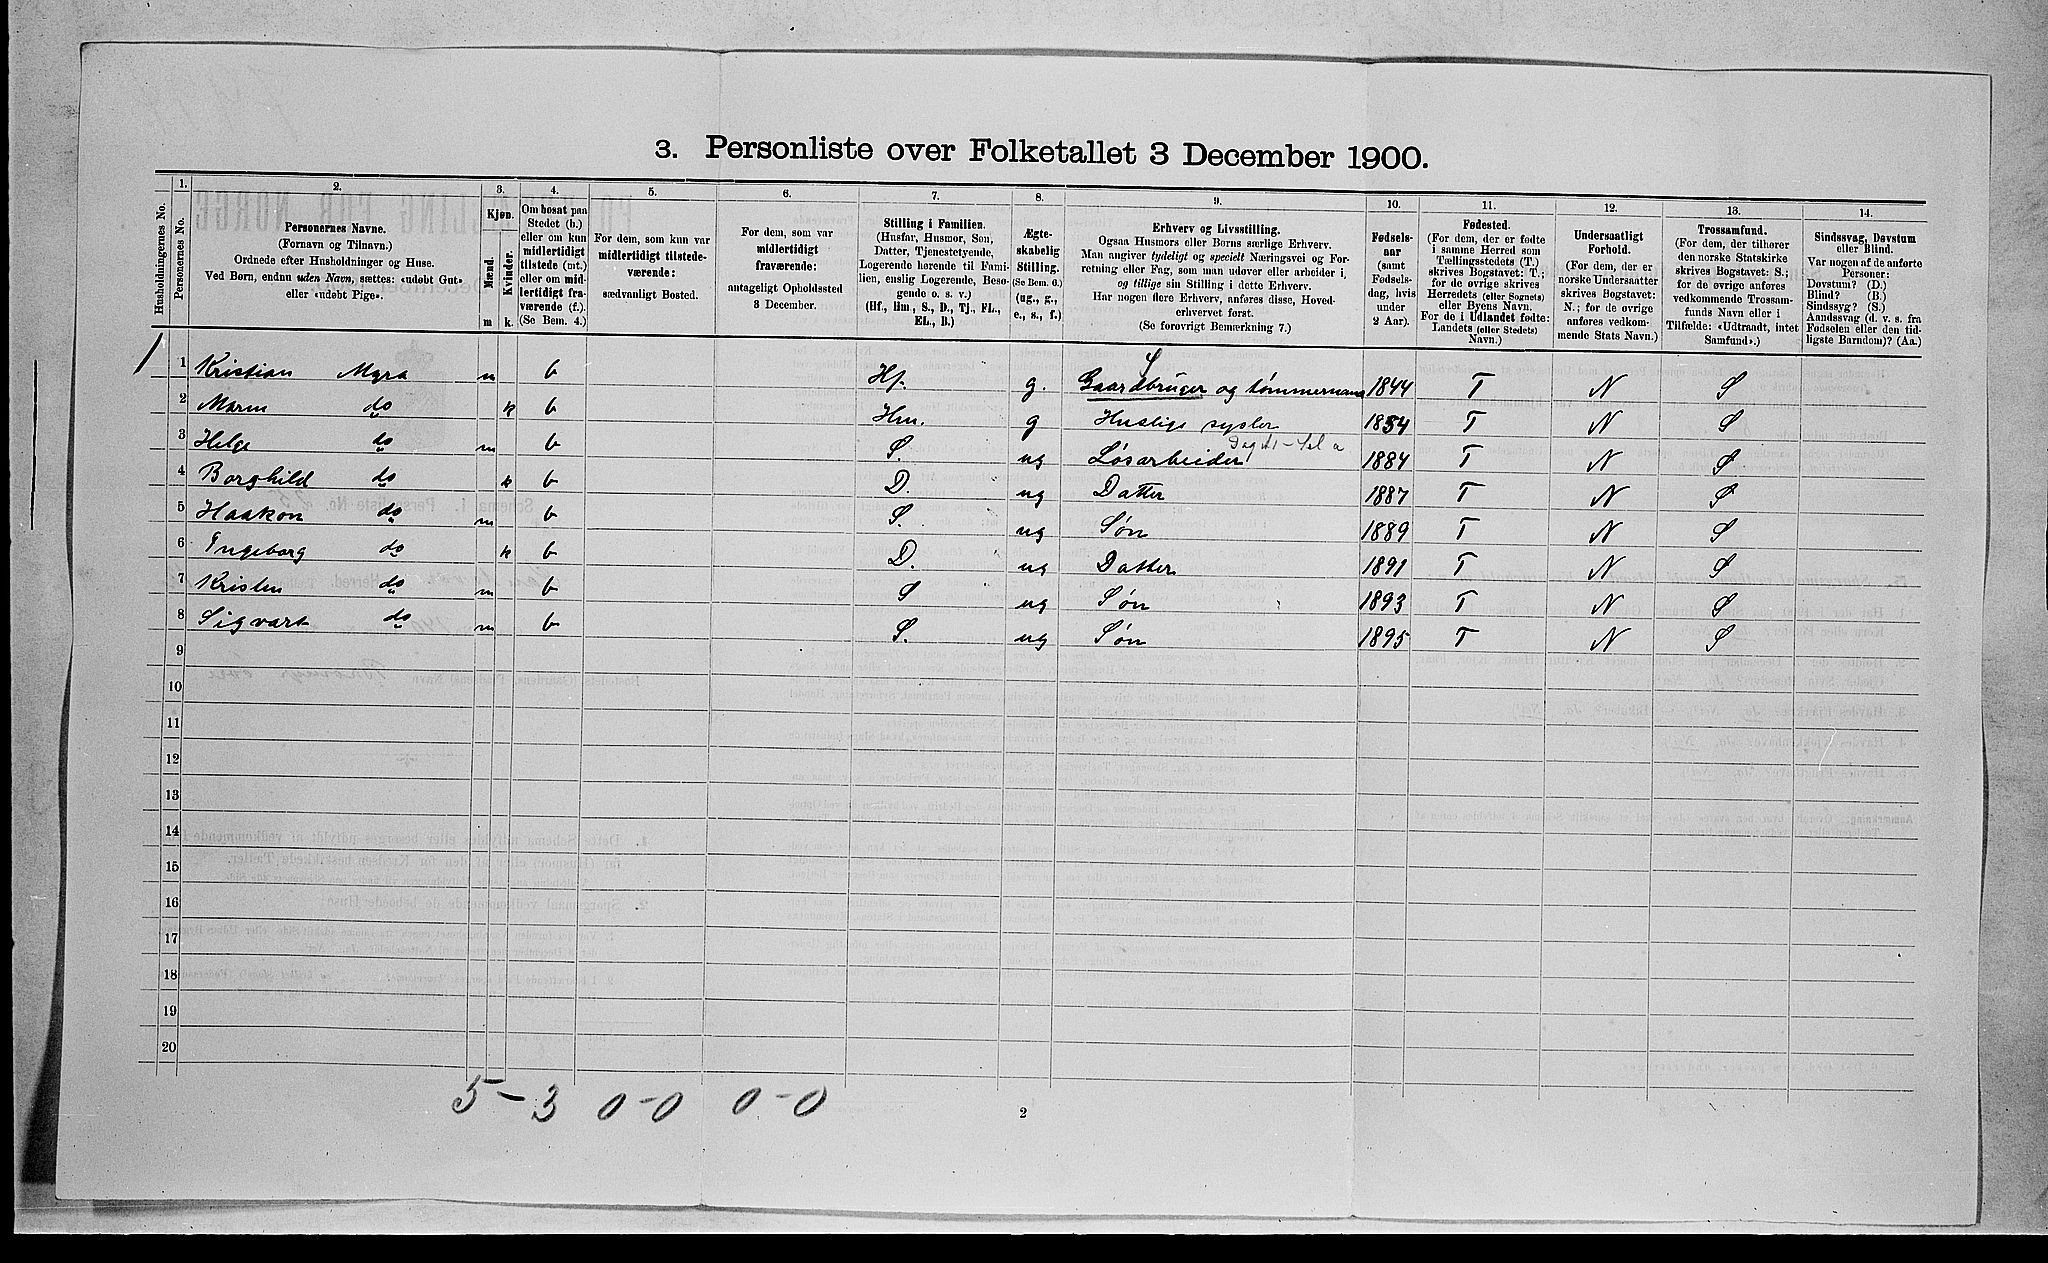 3. Personliste over Folketallet 3 December 1900.
Husholdningernes No.
1.
Personernes No.
2.
Personernes Navne.
(Fornavn og Tilnavn.)
Ordnede efter Husholdninger og Huse.
Ved Børn, endnu uden Navn, sættes: «udøbt Gut»
eller «udøbt Pige».
3.
Kjøn.
Mænd.
Kvinder.
m k.
4.
Om bosat paa
Stedet (b.)
eller om kun
midlertidigt
tilstede (mt.)
eller om mid-
lertidigt fra-
værende (f.).
(Se Bem. 4.)
5.
For dem, som kun var
midlertidigt tilstede-
værende:
sædvanligt Bosted.
6.
For dem, som var
midlertidigt
fraværende:
antageligt Opholdssted
3 December.
7.
Stilling i Familien.
(Husfar, Husmor, Søn,
Datter, Tjenestetyende,
Logerende hørende til Fami-
lien, enslig Logerende, Besø-
gende o. s. v.)
(Hf., Hm., S., D., Tj., FL.,
EL., B.)
8.
Ægte-
skabelig
Stilling.
(Se Bem. 6.)
(ug., g.,
e., s., f.)
9.
Erhverv og Livsstilling.
Ogsaa Husmors eller Børns særlige Erhverv.
Man angiver tydeligt og specielt Næringsvei og For-
retning eller Fag, som man udøver eller arbeider i,
og tillige sin Stilling i dette Erhverv.
Har nogen flere Erhverv, anføres disse, Hoved-
erhvervet først.
(Se forøvrigt Bemærkning 7.)
10.
Fødsels-
aar
(samt
Fødsels-
dag, hvis
under
2 Aar).
11.
Fødested.
(For dem, der er fødte
i samme Herred som
Tællingsstedet (T.)
skrives Bogstavet: T.;
for de øvrige skrives
Herredets (eller Sognets)
eller Byens Navn.
For de i Udlandet fødte:
Landets (eller Stedets)
Navn.)
12.
Undersaatligt
Forhold.
(For dem, der er
norske Undersaatter
skrives Bogstavet:
N.; for de øvrige
anføres vedkom-
mende Stats Navn.)
13.
Trossamfund.
(For dem, der tilhører
den norske Statskirke
skrives Bogstavet: S.;
for de øvrige anføres
vedkommende Trossam-
funds Navn eller i
Tilfælde: «Udtraadt, intet
Samfund».)
14.
Sindssvag, Døvstum
eller Blind.
Var nogen af de anførte
Personer:
Døvstum? (D.)
Blind? (B.)
Sindssyg? (S.)
Aandssvag (d. v. s. fra
Fødselen eller den tid-
ligste Barndom)? (Aa.)
1 1 Kristian Myra m b Hf. g. Gaardbruger og tømmermand 1844 T N S
2 Maren do k b Hm. g Huslige sysler 1854 T N S
3 Helge do m b S. ug Løsarbeider 1884 T N S
4 Borghild do k b D. ug Datter 1887 T N S
5 Haakon do m b S. ug Søn 1889 T N S
6 Ingeborg do k b D. ug Datter 1891 T N S
7 Kristen do m b S ug Søn 1893 T N S
8 Sigvart do m b S. ug Søn 1895 T N S
9
10
11
12
13
14
15
16
17
18
19
20
5-3 0-0 0-0
2